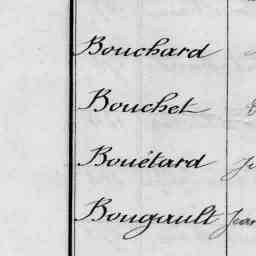 Bouchard
Bouchet
Bouétard
Bougault Jean